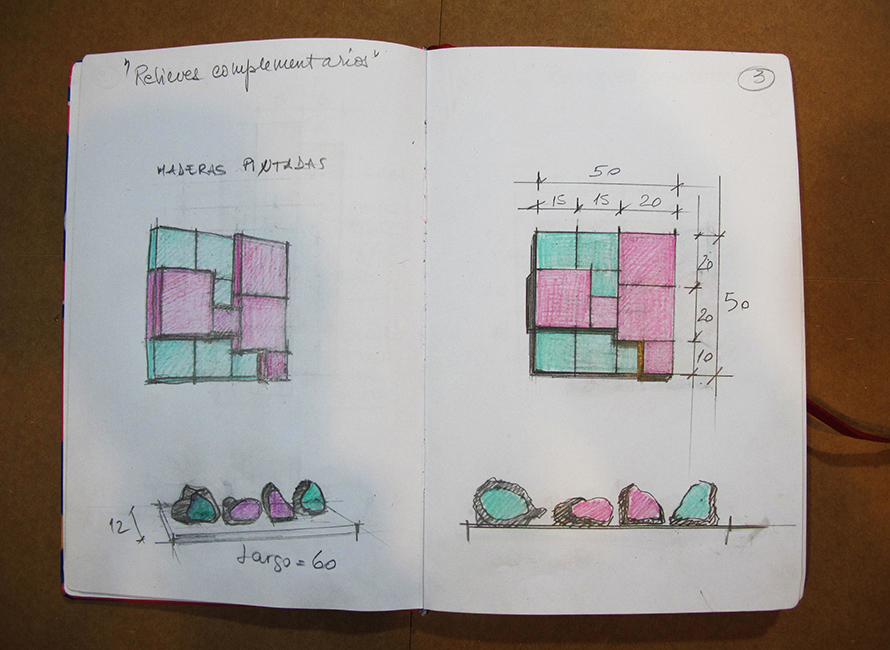 "Relieves complementarios"
MADERAS PINTADAS
12
Largo = 60
3
50
15 15 20
20
50
20
10